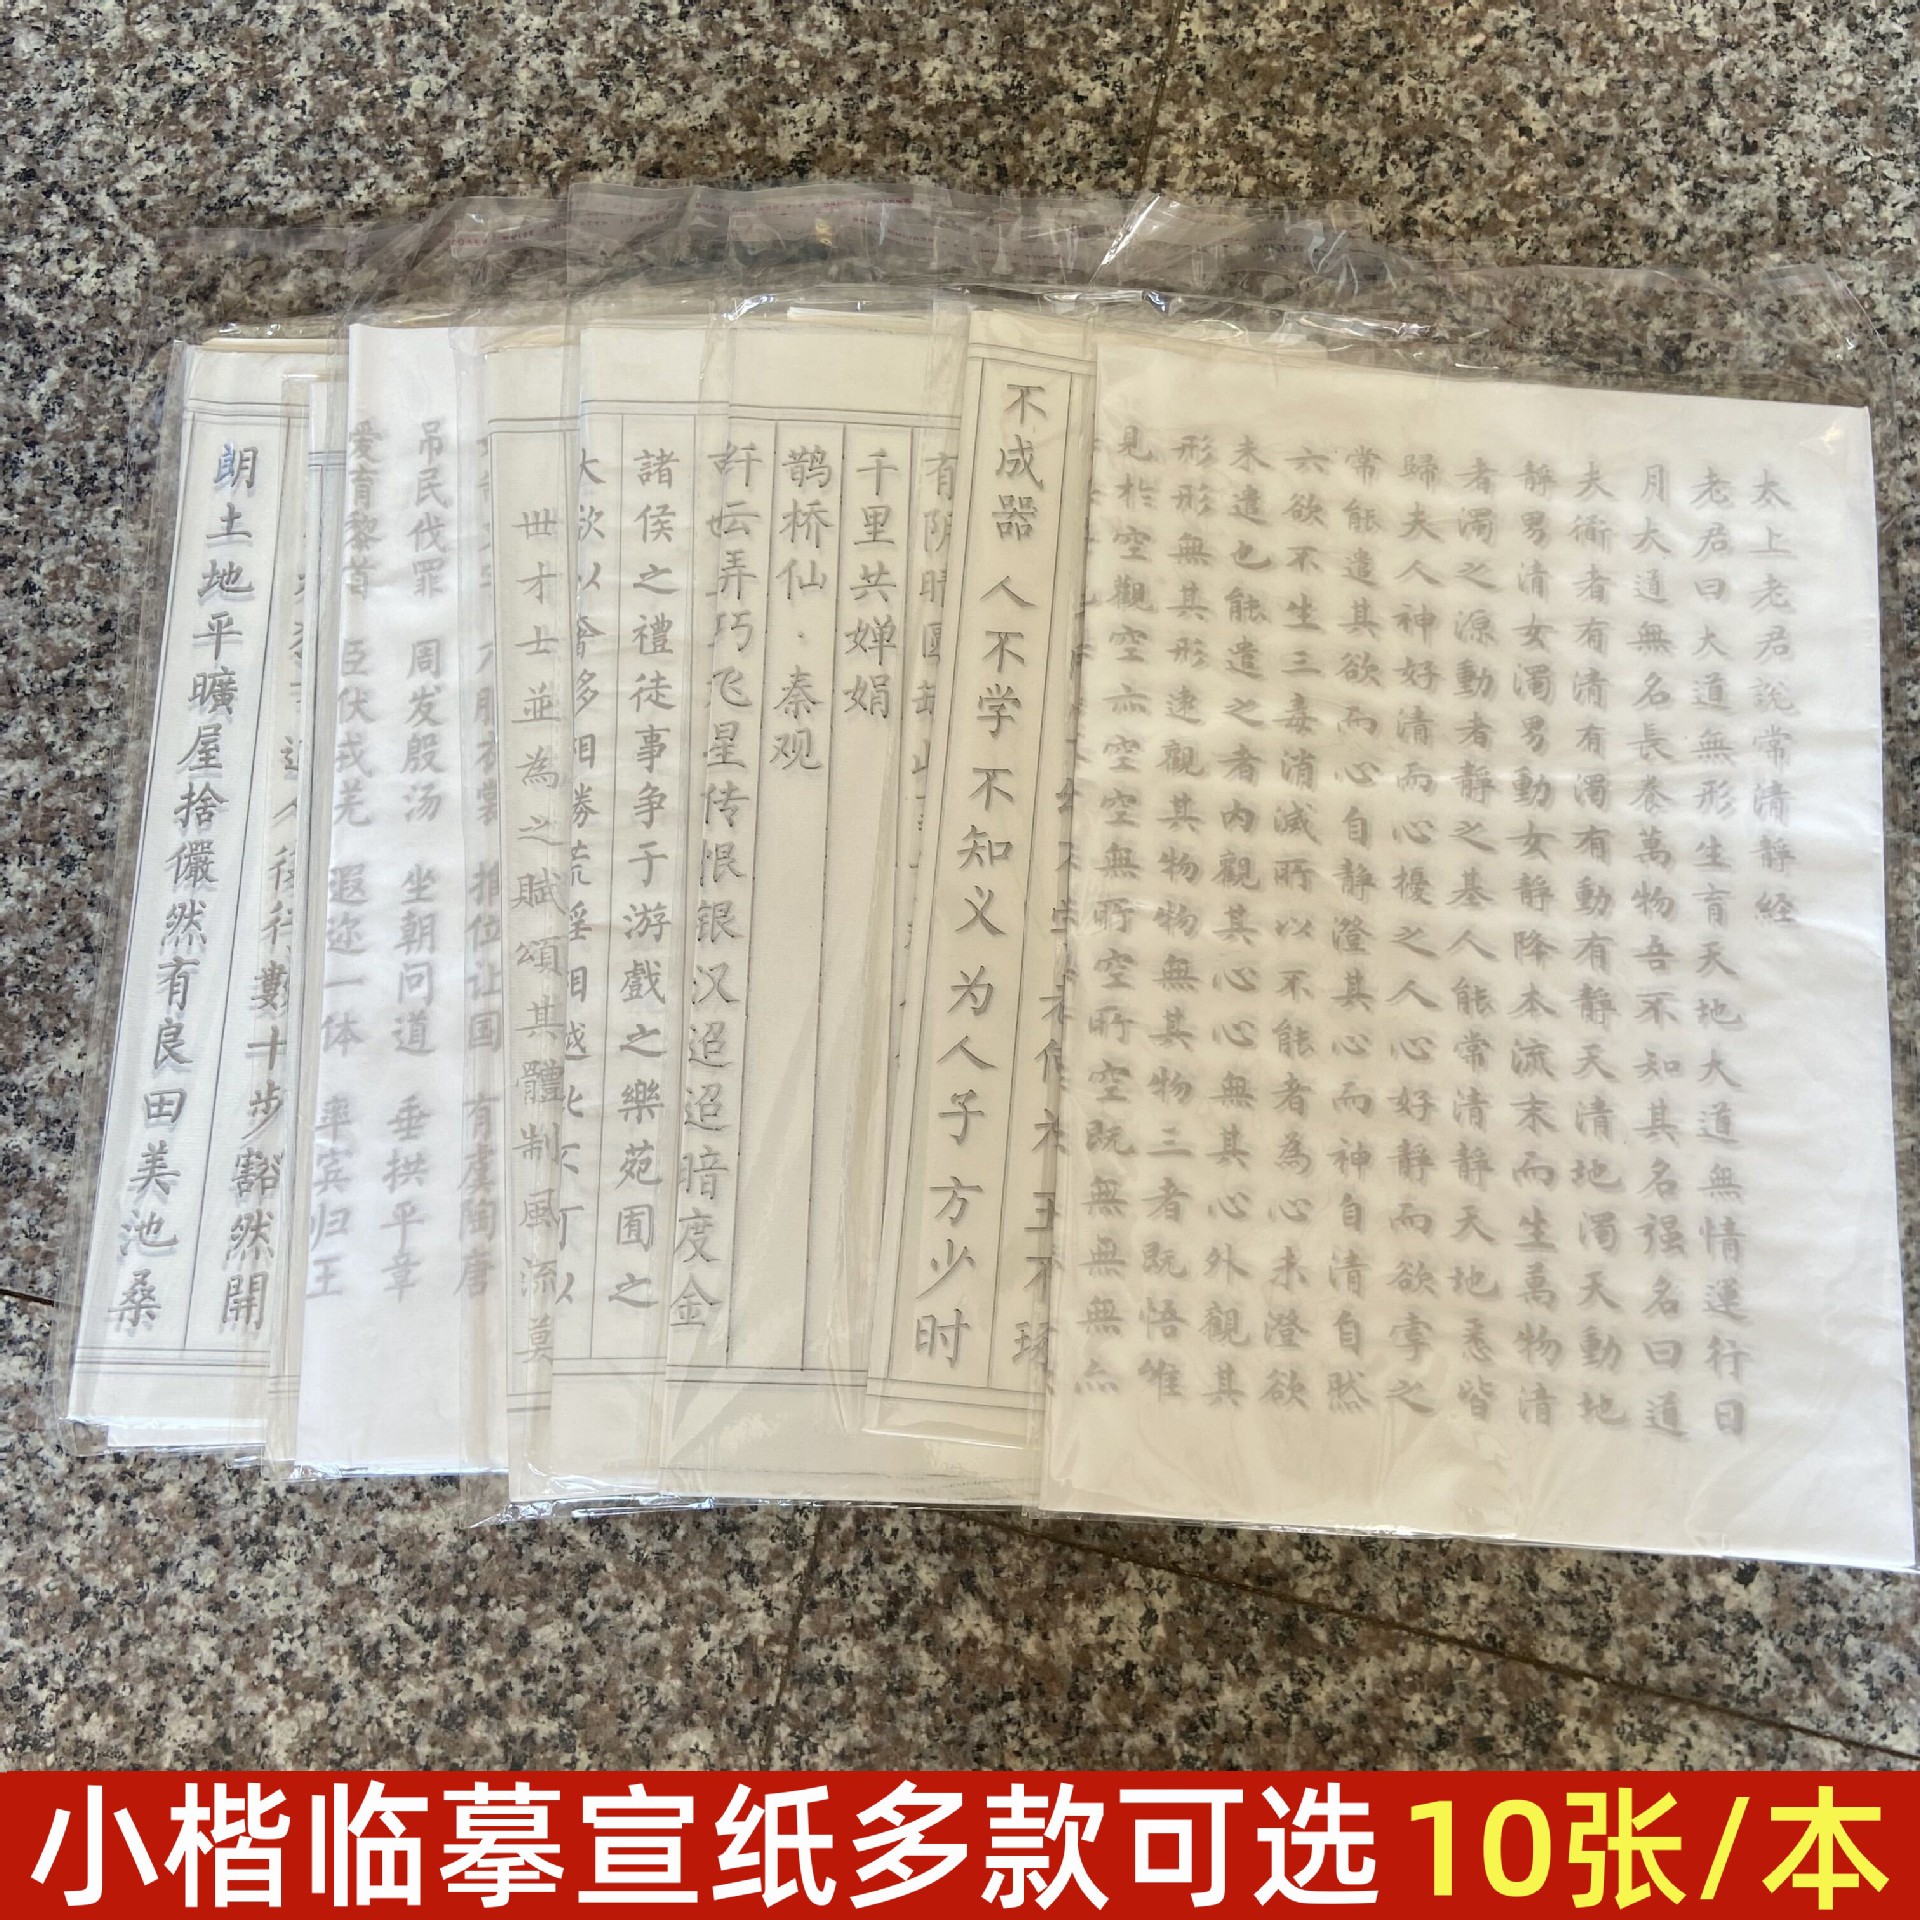 太上老君說常清靜經
老君曰大道無形生育天地大道無情運行日
月大道無名長養萬物吾不知其名强名曰道
夫衜者有清有濁有動有靜天清地濁天動地
靜男清女濁男動女靜降本流末而生萬物清
者濁之源動者靜之基人能常清靜天地悉皆
歸夫人神好清而心擾之人心好靜而欲牽之
常能遣其欲而心自靜澄其心而神自清自然
六欲不生三毒消滅所以不能者為心未澄欲
未遣也能遣之者內觀其心心無其心外觀其
形形無其形遠觀其物物無其物三者既悟唯
見於空觀空亦空空無所空所空既無無無亦
不成器 人不学 不知义 为人子 方少时
千里共婵娟
鹊桥仙·秦观
纤云弄巧飞星传恨银汉迢迢暗度金
諸侯之禮徒事争于游戲之樂苑囿之
大欲以奢侈相勝荒淫相越此不可以
世才士並為之賦頌其體制風流莫
推位让国 有虞陶唐
吊民伐罪 周发殷汤 坐朝问道 垂拱平章
爱育黎首 臣伏戎羌 遐迩一体 率宾归王
數十步豁然開
朗土地平曠屋捨儼然有良田美池桑
小楷临摹宣纸多款可选10张/本